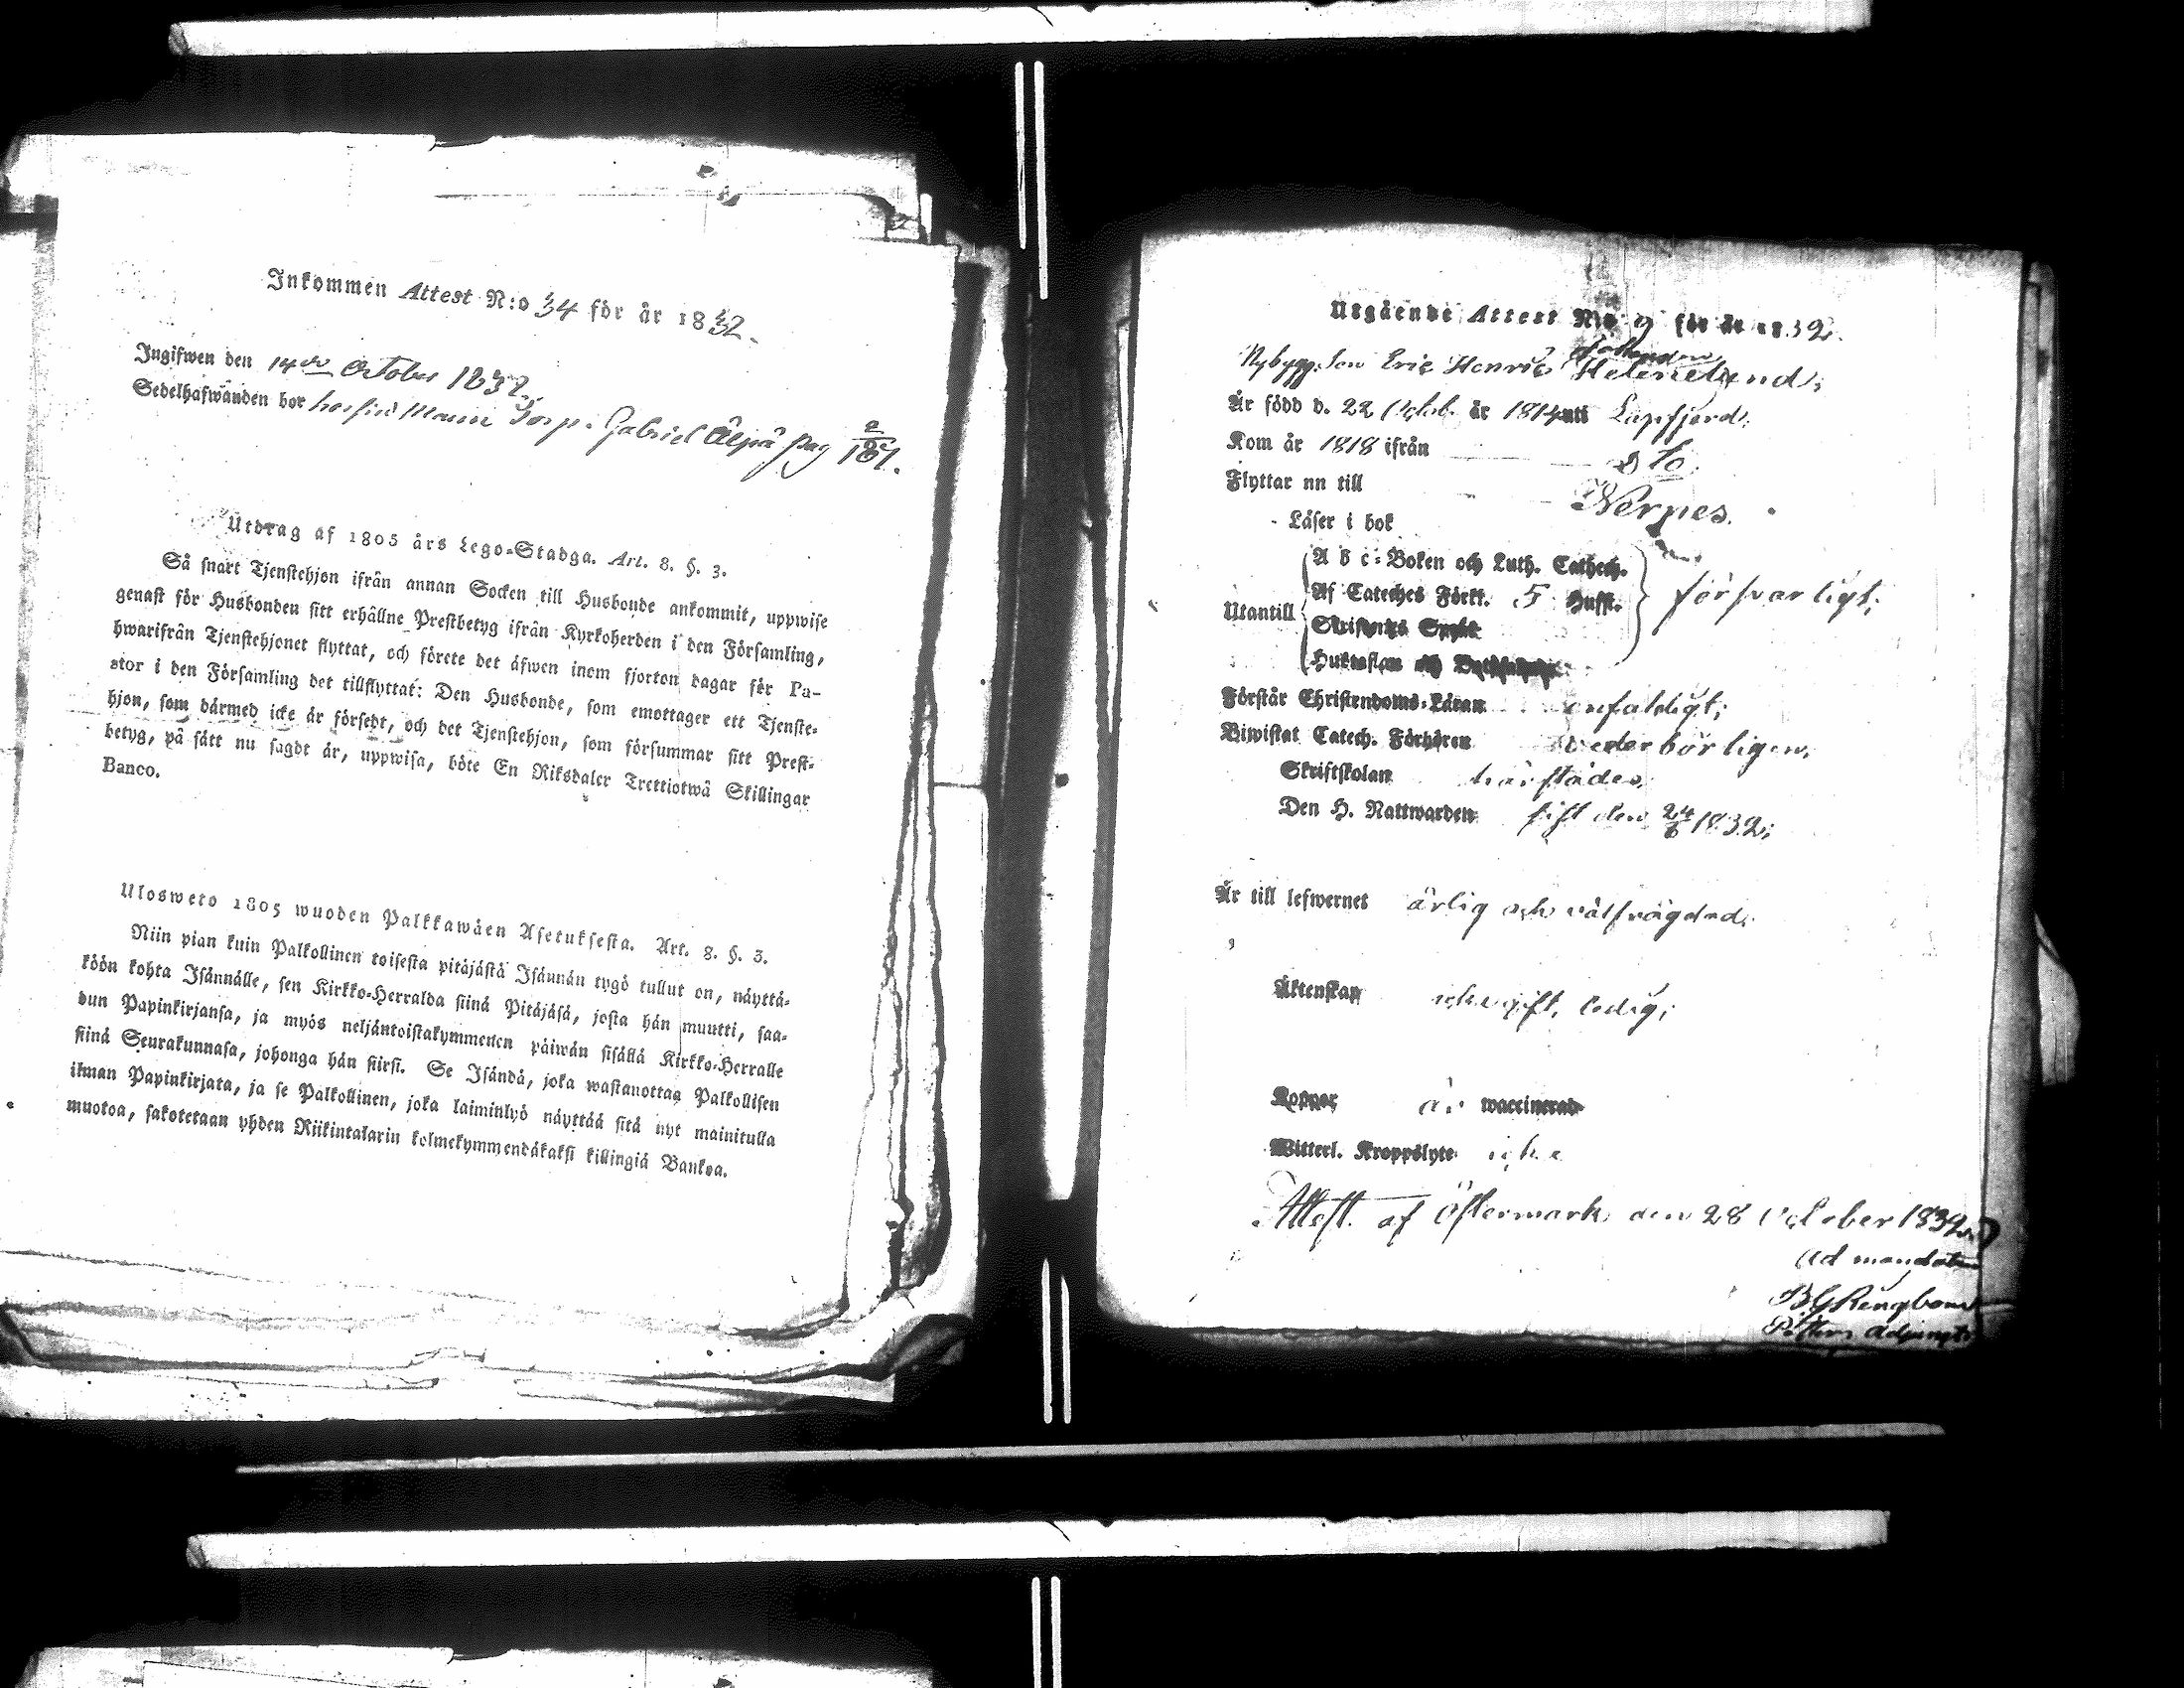 Inkommen Attest N:o 34 för år 1832.
Ingifwen den 14de October 1832.
Sedelhafwanden bor hos Torp. Gabriel pag 2/187.
Utdrag af 1805 års Lego-Stadga. Art. 8. §. 3.
Så snart Tjenstehjon ifrån annan Socken till Husbonde ankommit, uppwise
genast för Husbonden sitt erhållne Prestbetyg ifrån Kyrkoherden i den Församling,
hwarifrån Tjenstehjonet flyttat, och förete det äfwen inom fjorton dagar för Pa-
stor i den Församling det tillflyttat: Den Husbonde, som emottager ett Tjenste-
hjon, som därmed icke är försedt, och det Tjenstehjon, som försummar sitt Prest-
betyg, på sätt nu sagdt är, uppwisa, böte En Riksdaler Trettiotwå Skillingar
Banco.
Ulosweto 1805 wuoden Palkkawäen Asetuksesta. Art. 8. §. 3.
Niin pian kuin Palkollinen toisesta pitäjästä Isännän tygö tullut on, näyttä-
köön kohta Isännälle, sen Kirkko-Herralda siinä Pitäjäsä, josta hän muutti, saa-
dun Papinkirjansa, ja myös neljäntoistakymmenen päiwän sisällä Kirkko-Herralle
siinä Seurakunnasa, johonga hän siirsi. Se Isändä, joka wastanottaa Palkollisen
ilman Papinkirjata, ja se Palkollinen, joka laiminlyö näyttää sitä nyt mainitulla
muotoa, sakotetaan yhden Riikintalarin kolmekymmendäkaksi killingiä Bankoa.
Utgående Attest N:o 9 för år 1832.
Nybygg. Son Eric Henric Helenelund;
Är född d. 22 Octob. år 1814 uti Lappfjerd;
Kom år 1818 ifrån dto.
Flyttar nu till Nerpes.
Läser i bok
A b c-Boken och Luth. Catech.
Utantill Af Cateches Förkl. 5 Hufst. försvarligt;
Skriftens Språk
Hustaflan och
Förstår Christendoms-Läran enfaldigt;
Biwistat Catech. Förhören wederbörligen;
Skriftskolan härstädes;
Den H. Nattwarden sist den 24/6 1832;
Är till lefwernet ärlig och välfrägdad;
Äktenskap icke gift, ledig;
Koppor är waccinerad
Witterl. Kroppslyte icke
Attest. af Östermark den 28 October 1832.
Ad mandatum
BG Rengbom
Past. Adjunct.